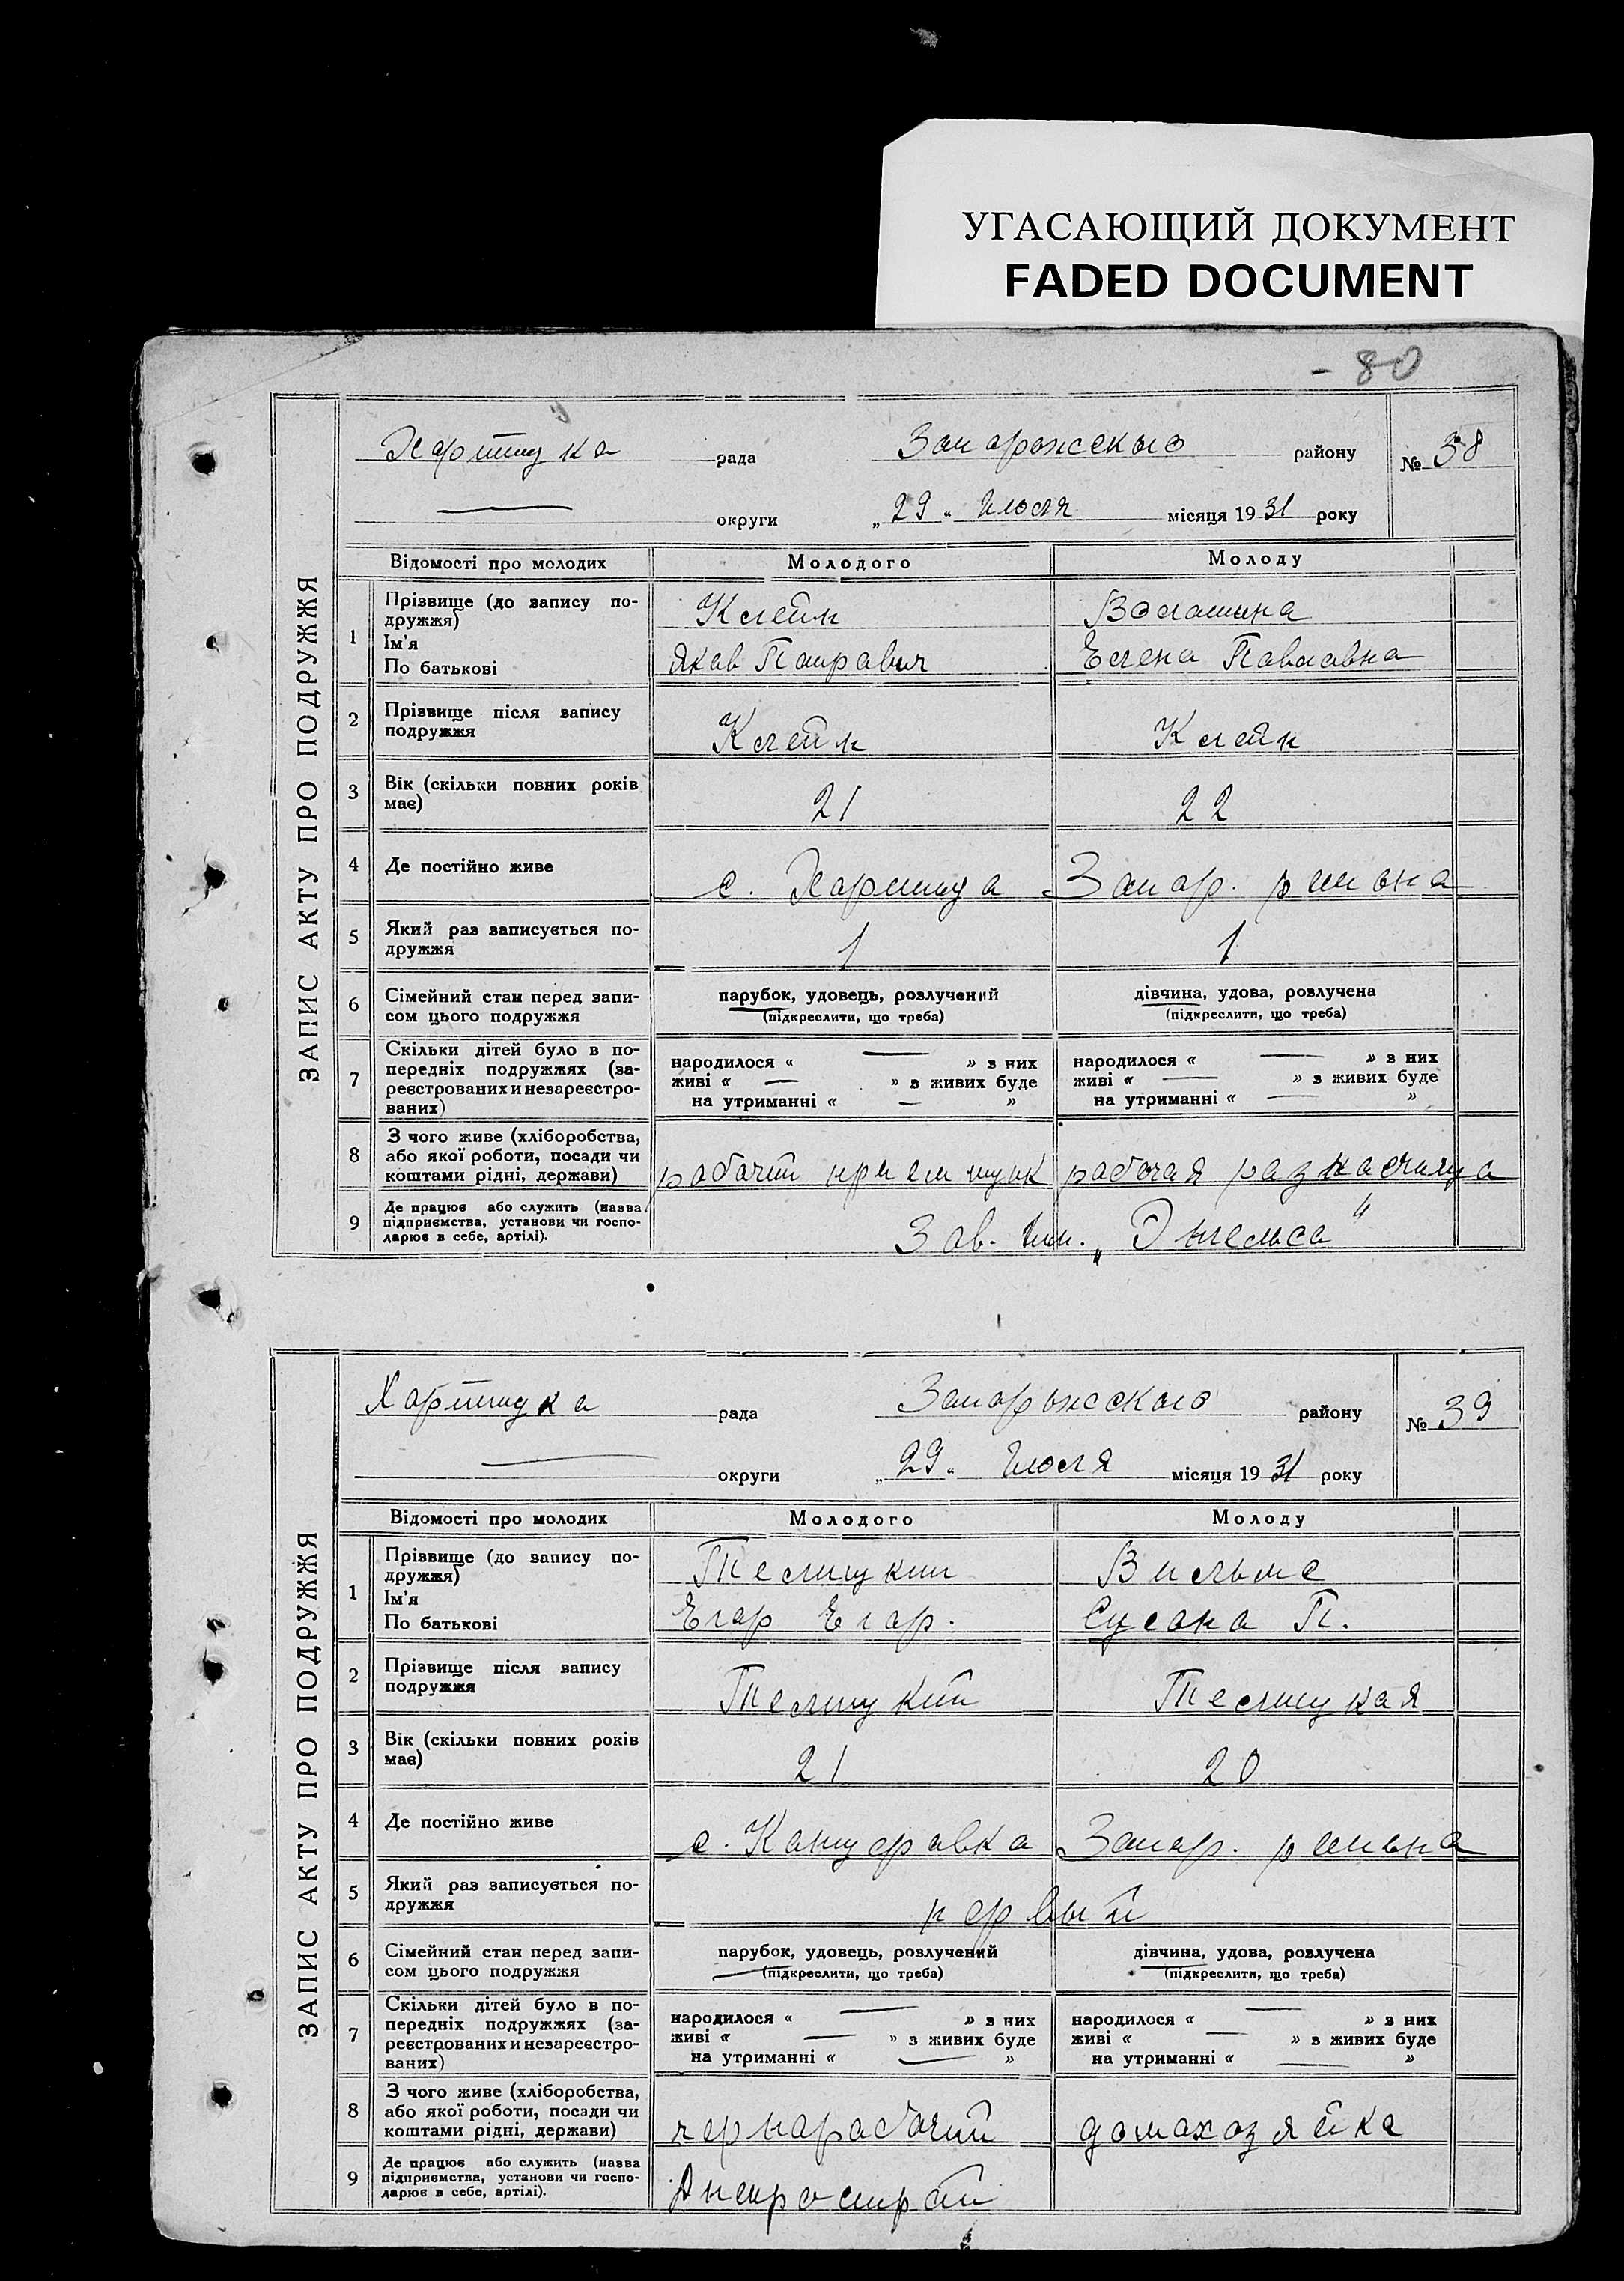 УГАСАЮЩИЙ ДОКУМЕНТ
FADED DOCUMENT
- 80
ЗАПИС АКТУ ПРО ПОДРУЖЖЯ
Хортицка рада Запорожского району № 38
— округи „29“ Июля місяця 1931 року
Відомості про молодих Молодого Молоду
1 Прізвище (до запису по-
дружжя) Клейн Волошина
Ім'я
По батькові Яков Елена Павлавна
2 Прізвище після запису
подружжя Клейн Клейн
3 Вік (скільки повних років
має) 21 22
4 Де постійно живе с. Хортица Запор. района
5 Який раз записується по-
дружжя 1 1
6 Сімейний стан перед запи-
сом цього подружжя парубок, удовець, розлучений дівчина, удова, розлучена
(підкреслити, що треба) (підкреслити, що треба)
7 Скільки дітей було в по-
передніх подружжях (за-
реєстрованих и незареєстро-
ваних) народилося « — » з них народилося « — » з них
живі « — » з живих буде живі « — » з живих буде
на утриманні « — » на утриманні « — »
8 З чого живе (хліборобства,
або якої роботи, посади чи
коштами рідні, держави) рабочий приемщик рабочая разнасчица
9 Де працює або служить (назва
підприємства, установи чи госпо-
дарює в себе, артілі). Зав. им. „Энгельса“
ЗАПИС АКТУ ПРО ПОДРУЖЖЯ
Хортицка рада Запорожского району № 39
— округи „29“ Июля місяця 1931 року
Відомості про молодих Молодого Молоду
1 Прізвище (до запису по-
дружжя) Теслицкий Вильмс
Ім'я
По батькові Егар Егар. Сусана П.
2 Прізвище після запису
подружжя Теслицкий Теслицкая
3 Вік (скільки повних років
має) 21 20
4 Де постійно живе с. Канцеравка Запор. района
5 Який раз записується по-
дружжя первый
6 Сімейний стан перед запи-
сом цього подружжя парубок, удовець, розлучений дівчина, удова, розлучена
(підкреслити, що треба) (підкреслити, що треба)
7 Скільки дітей було в по-
передніх подружжях (за-
реєстрованих и незареєстро-
ваних) народилося « — » з них народилося « — » з них
живі « — » з живих буде живі « — » з живих буде
на утриманні « — » на утриманні « — »
8 З чого живе (хліборобства,
або якої роботи, посади чи
коштами рідні, держави) чернарабочий домахозяйка
9 Де працює або служить (назва
підприємства, установи чи госпо-
дарює в себе, артілі). Днепрострой